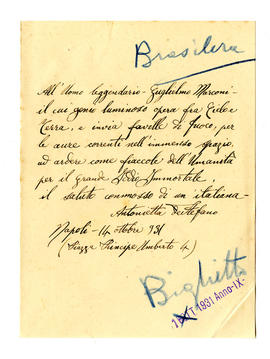 Brasilera
All'Uomo leggendario - Guglielmo Marconi -
il cui genio luminoso opera fra Cielo e
Terra, e invia favelle di fuoco, per
le aure correnti nell'immenso spazio,
ad ardere come fiaccole dell'Umanità
per il grande Iddio Immortale,
il saluto commosso di un'italiana -
Antonietta De Stefano
Napoli - 14 ottobre 931
(Piazza Principe Umberto 4.)
Biglietto
1931 Anno-IX-